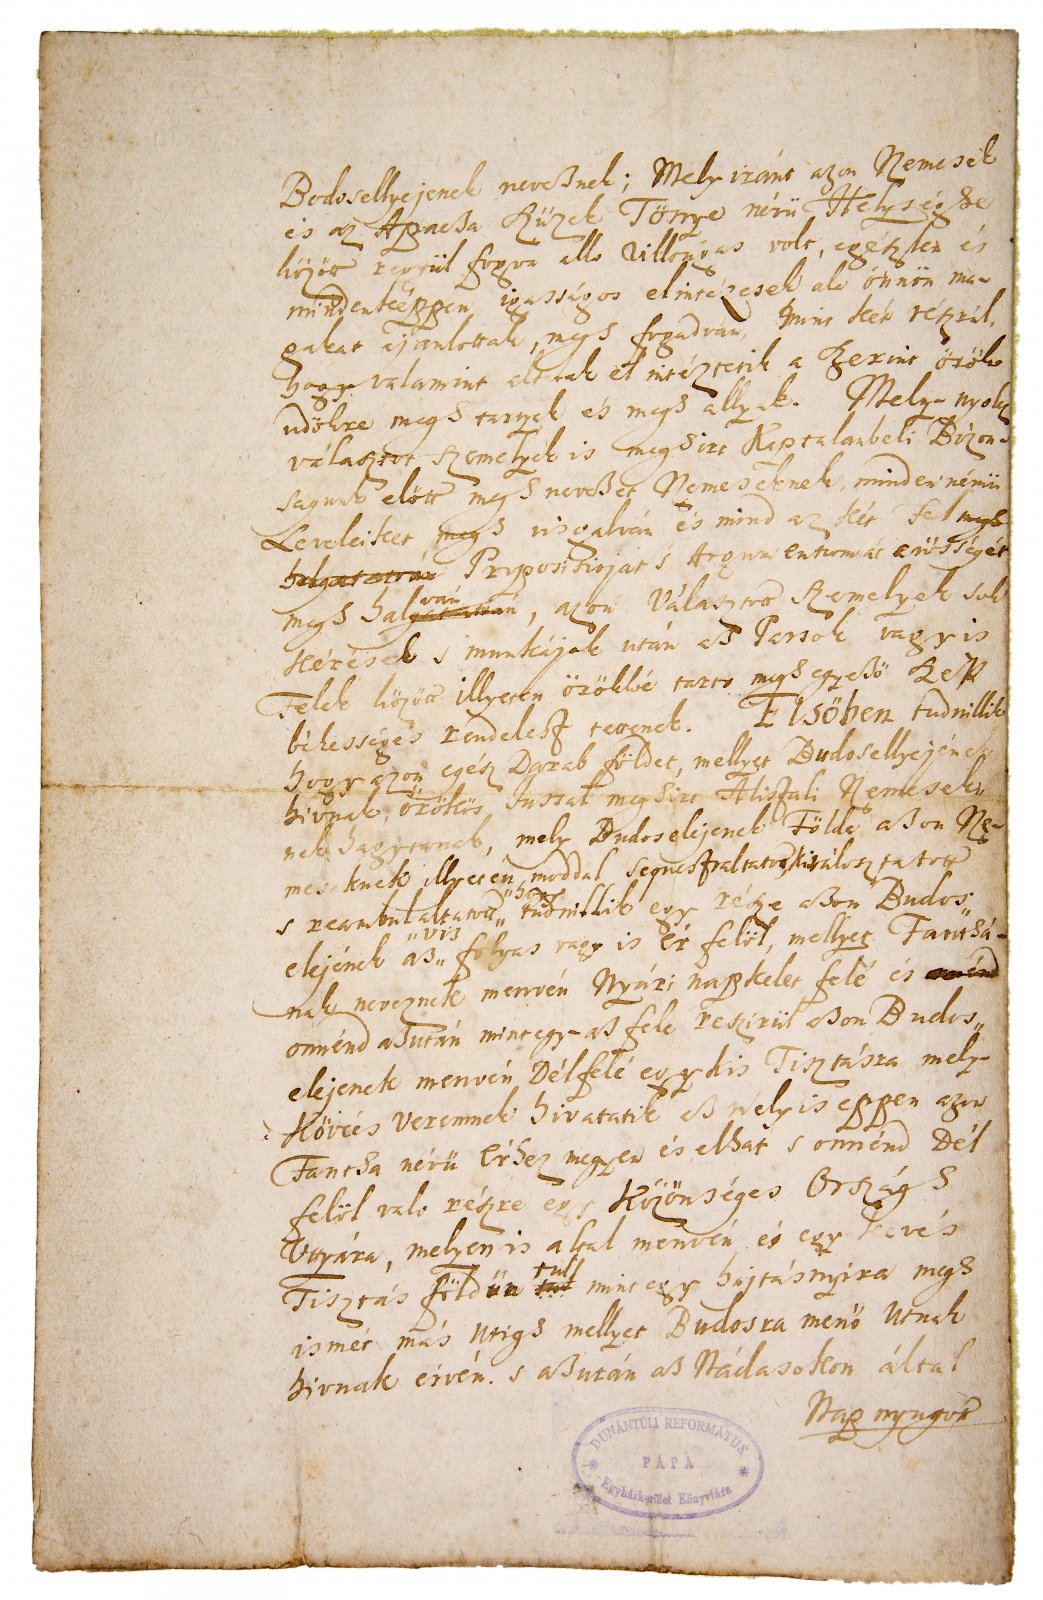 Bodosellyejenek neveßnek; Mely iránt azon Nemesek
és az Apacßa Szüzek Tönye névü Helységße
között regtül fogva allo villongas volt, egészlen és
mindenképpen igasságos elintézesek alá önnön ma-
gakat ajanlottak, megh fogadván, mint két részrül,
hogy valamint altalak el intéztetik a szerint örök
üdökre megh tartyak és megh allyak. Mely nyolcz
választot személyek is meghirt Kaptalanbeli Bizon-
sagunk elött megh neveßet Nemeseknek, mindennémü
Leveleiket megh visgalván és mind az két fel megh
halgatatván Propositiojat s Argumentomát erösségét
megh halgván, azon Választot személyek sok
kérések s munkájok után aß Parsok vagy is
Felek között illyeten örökké tarto megh egyeßö Kép
békességes rendelest tettenek. Elsöben tudnillik
hogy azon egész Darab földet, mellyet Budosellyejének
hivnak, örökös Jussal meghirt Alistali Nemesek„
nek hagytanak, mely Budoselejenek Földe aßon Ne-
meseknek illyetén moddal sequestraltatot kiválasztatott
s reambulaltatott „hogy„ tudnillik egy része aßon Budos„
elejének aß „viz„ folyas vagy is Ér felöl, mellyet Fanchá-
nak neveznek menvén Nyári napkelet felé és onnénd
onnénd aßután mintegy aß fele reszirül aßon Budos„
elejenek menvén Délfelé egy kis Tisztásra mely
Kövies Veremnek hivatatik aß mely is eppen azon
Fancha névü Érhez megyen és elhat s onnénd Dél
felöl valo részre egy Közönséges Orszagh
Uttyára, melyen is altal menvén és egy kevés
Tisztás földün tul tul mint egy hajtásnyira megh
ismét más Utigh mellyet Budosra menö Utnak
hivnak érvén. s aßután aß Nádasokon által
Nap nyugot
DUNÁNTÚLI REFORMÁTUS
PÁPA
Egyházkerület Könyvtára